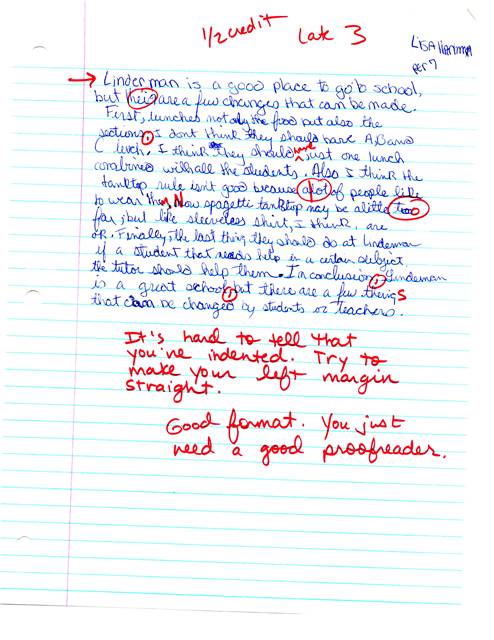 1/2 credit Late 3
LISA
PER 7
Linderman is a good place to go to school,
but their are a few changes that can be made.
First, lunches not only the food but also the
sections. I dont think they should have A, B and
C lunch, I think they should have just one lunch
combined with all the students. Also I think the
tanktop rule isnt good because alot of people like
to wear them, Now spagetti tanktop may be a little too
far, but like sleeveless shirt, I think, are
OK. Finally, the last thing they should do at Lindeman
if a student that needs help in a certain subject,
the tutor should help them. In conclusion, Lindeman
is a great school, but there are a few things
that can be changed by students or teachers.
It's hard to tell that
you've indented. Try to
make your left margin
straight.
Good format. You just
need a good proofreader.